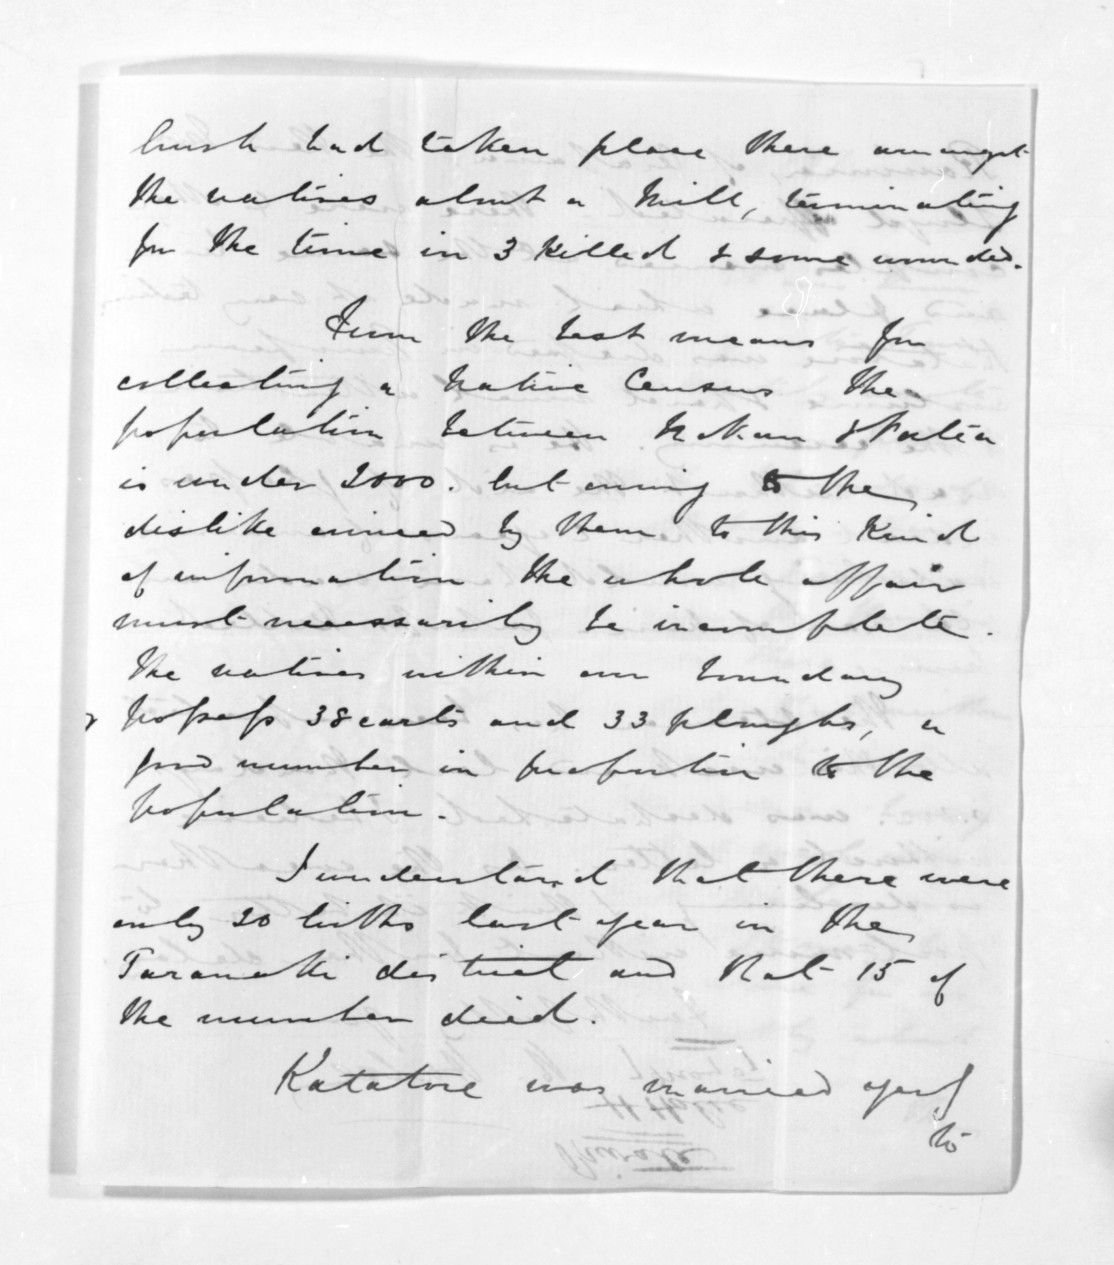 brush had taken place there amongst
the natives about a Mill, terminating
for the time in 3 killed & some wounded.
From the best means for
collecting a Native Census the
population between Mokau & Patea
is under 2000. but owing to the
dislike evinced by them to this kind
of information the whole affair
must necessarily be incomplete.
The natives within our boundary
possess 38 carts and 33 ploughs, a
good number in proportion to the
population.
I understand that there were
only 20 births last year in the
Taranaki district and that 15 of
the number died.
Katatore was married
to